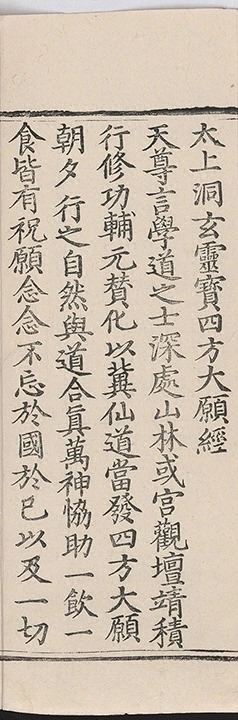 太上洞玄靈寶四方大願經
天尊言學道之士深處山林或宮觀壇靖積
行修功輔元贊化以冀仙道當發四方大願
朝夕行之自然與道合真萬神恊助一飲一
食皆有祝願念念不忘於國於已以及一切